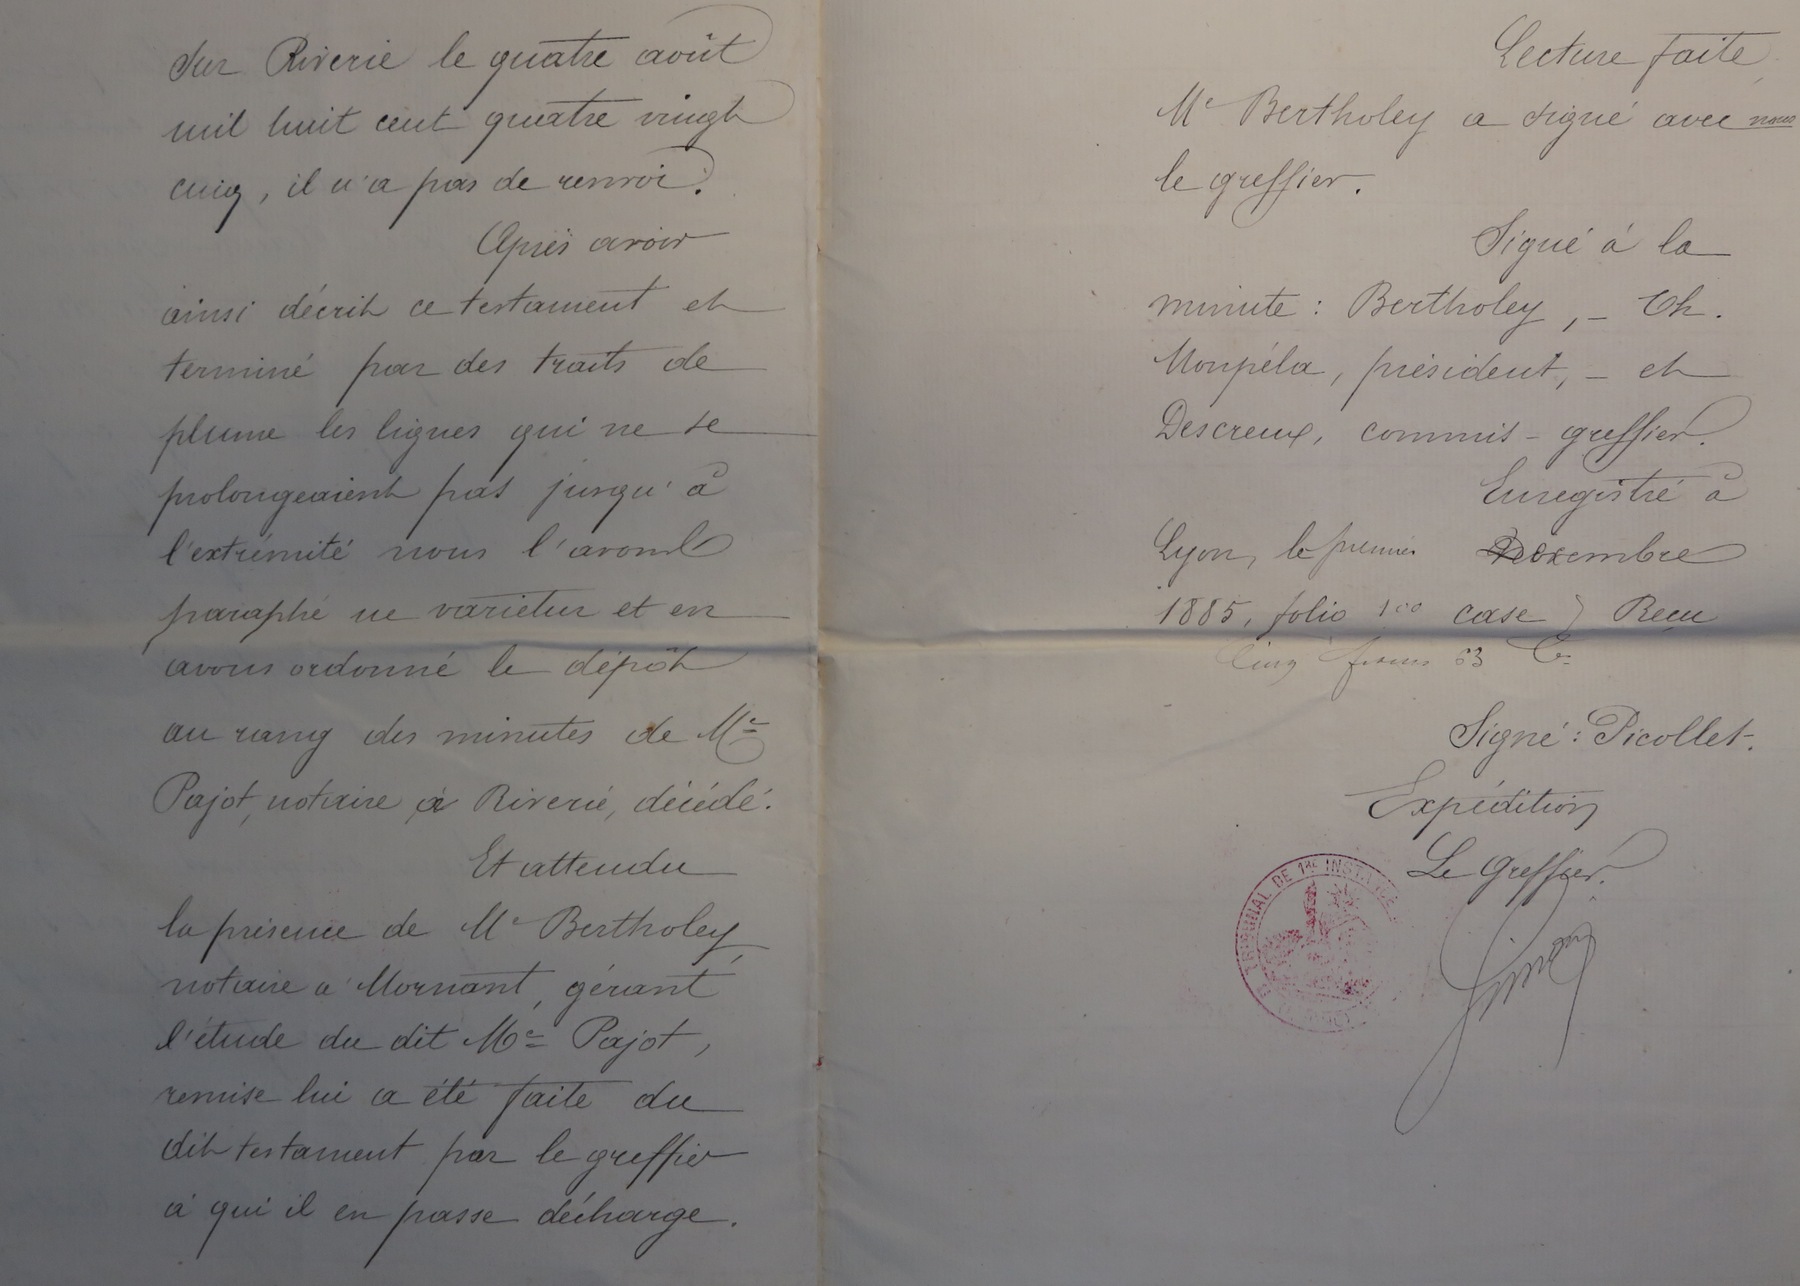 sur Riverie le quatre août
mil huit cent quatre vingt
cinq, il n'a pas de renvoi.
Après avoir
ainsi décrit ce testament et
terminé par des traits de
plume les lignes qui ne se
prolongeaient pas jusqu'à
l'extrémité nous l'avons
paraphé ne varietur et en
avons ordonné le dépôt
au rang des minutes de Me
Pajot, notaire à Riverié, décédé.
Et attendu
la présence de Me Bertholey,
notaire a Mornant, gérant
l'étude du dit Me Pajot,
remise lui a été faite du
dit testament par le greffier
à qui il en passe décharge.
Lecture faite,
Me Bertholey a signé avec nous
le greffier.
Signé à la
minute : Bertholey, – Ch.
Monpéla, président, – et
Descreux, commis-greffier.
Enregistré à
Lyon, le premier
1885, folio 100 case Reçu
Cinq francs 63 c
Signé : Picollet.
Expédition
Le Greffier.
TRIBUNAL DE 1re INSTANCE